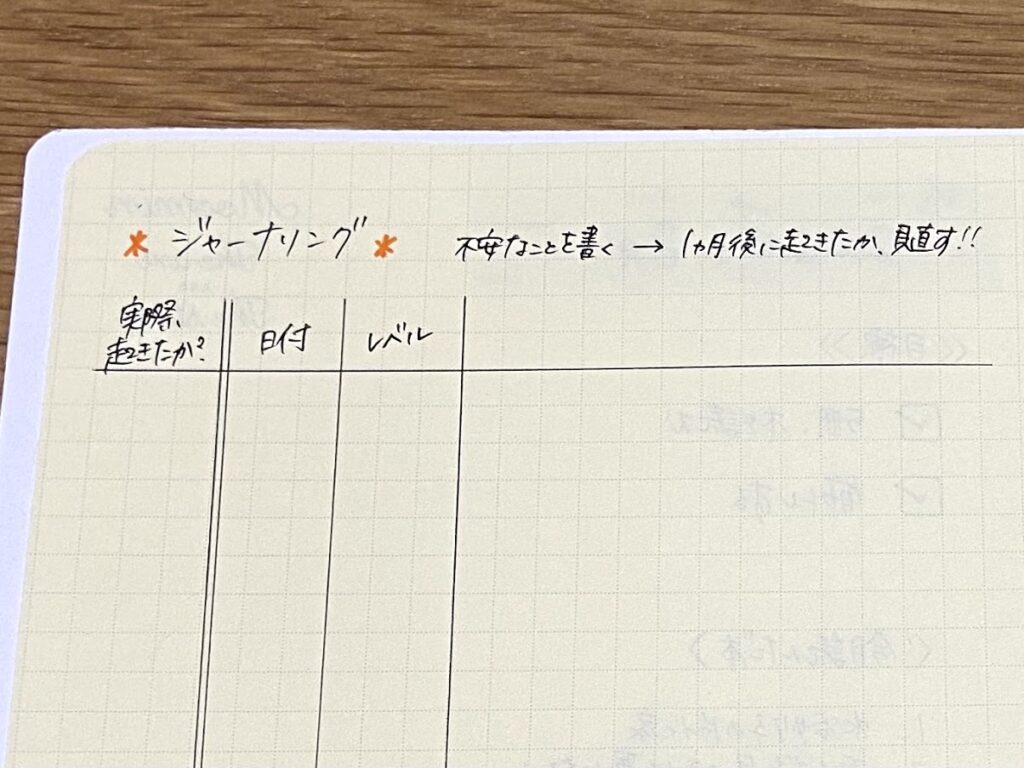 * ジャーナリング *
不安なことを書く → 1ヵ月後に起きたか、見直す!!
実際、
起きたか?
日付
レベル